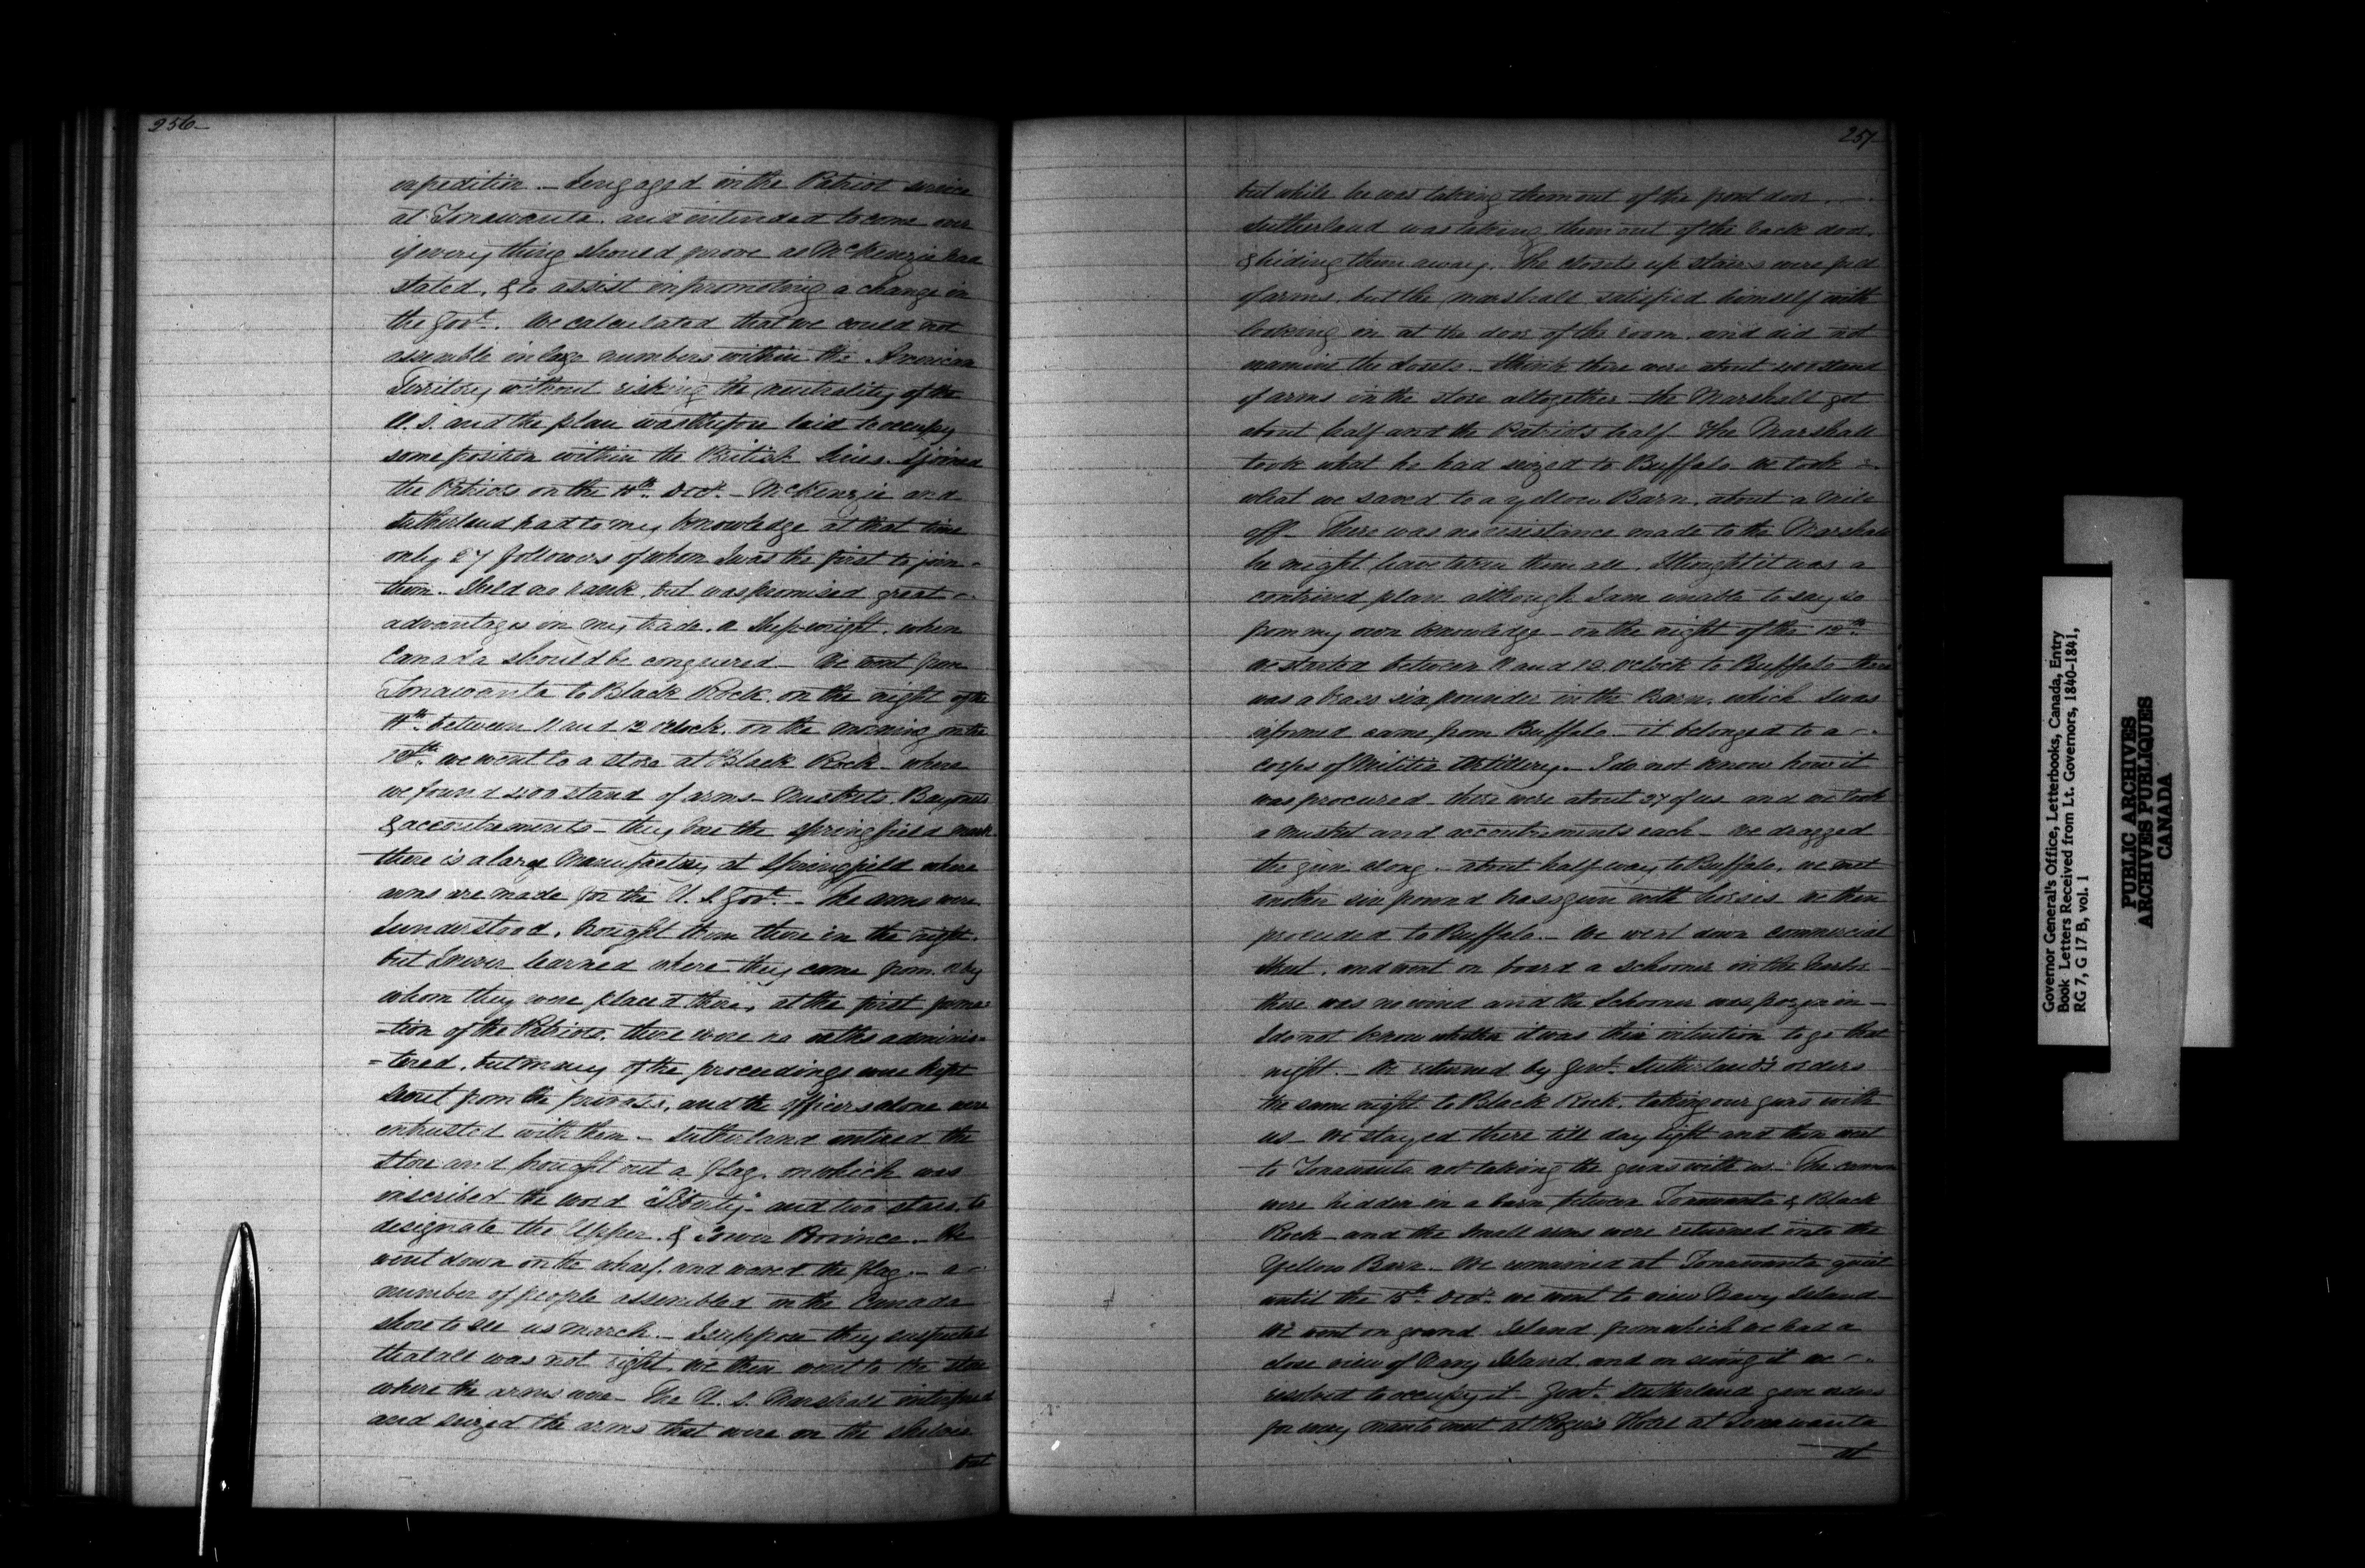 256
expedition. – I engaged in the Patriot service
at Tonawanta, and intended to come over
if every thing should prove as McKenzie had
stated, & to assist in promoting a change in
the Govt. We calculated that we could not
assemble in large numbers within the American
Territory without risking the neutrality of the
U. S. and the plan was therefore laid to occupy
some position within the British lines. I joined
the Patriots on the 11th Decr. – McKenzie and
Sutherland had to my knowledge at that time
only 27 followers of whom I was the first to join
them. I held no rank, but was promised great
advantages in my trade, a Shipwright, when
Canada should be conquered – We went from
Tonawanta to Black Rock, on the night of the
11th between 11 and 12 oclock, on the morning on the
12th we went to a store at Black Rock – where
we found 400 stand of arms – Muskets, Bayonets
& accoutrements – they bore the Springfield mark –
there is a large Manufactory at Springfield where
arms are made for the U. S. Govt. – the arms were
I understood, brought them there in the night.
but I never learned where they came from, or by
whom they were placed there, at the first forma=
=tion of the Patriots, there were no oaths adminis=
=tered, but many of the proceedings were kept
secret from the privates, and the officers alone were
entrusted with them – Sutherland entered the
Store and brought out a flag, on which was
inscribed the word "Liberty" and two stars, to
designate the Upper & Lower Province. – We
went down on the wharf, and waved the flag – a
number of people assembled on the Canada
shore to see us march. – I suppose they suspected
that all was not right, we then went to the store
where the arms were – The U. S. Marshall interfered
and seized the arms that were on the shelves
but
257
but while he was taking them out of the front door,
Sutherland was taking them out of the back door
& hiding them away. The closets up stairs were full
of arms, but the Marshall satisfied himself with
looking in at the door of the room, and did not
examine the closets. I think there were about 400 stand
of arms in the store altogether – the Marshall got
about half and the Patriots half – The Marshall
took what he had seized to Buffalo we took
what we saved to a yellow Barn, about a mile
off – There was no resistance made to the Marshall
he might have taken them all, I thought it was a
contrived plan, although I am unable to say so
from my own knowledge – on the night of the 12th
we started between 11 and 12 oclock to Buffalo – there
was a brass six pounder in the Barn, which I was
informed came from Buffalo – it belonged to a
corps of Militia Artillery. – I do not know how it
was procured – there were about 27 of us and we took
a musket and accoutrements each – We dragged
the gun along. – about half way to Buffalo, we met
another six pound brass gun with horses we then
proceeded to Buffalo. – We went down Commercial
Street, and went on board a Schooner in the harbor –
there was no wind and the Schooner was frozen in –
I do not know whether it was their intention to go that
night. – We returned by Genl. Sutherland's orders
the same night to Black Rock, taking our guns with
us – We stayed there till day light and then went
to Tonawanta not taking the guns with us. The cannon
were hidden in a barn between Tonawanta & Black
Rock – and the small arms were returned into the
Yellow Barn. – We remained at Tonawanta quiet
until the 15th Decr. we went to view Navy Island –
We went on grand Island from which we had a
close view of Navy Island, and on seeing it we
resolved to occupy it – Genl. Sutherland gave orders
for every man to meet at Hotel at Tonawanta
at
Governor General's Office, Letterbooks, Canada, Entry
Book Letters Received from Lt. Governors, 1840-1841,
RG 7, G 17 B, vol. 1
PUBLIC ARCHIVES
ARCHIVES PUBLIQUES
CANADA